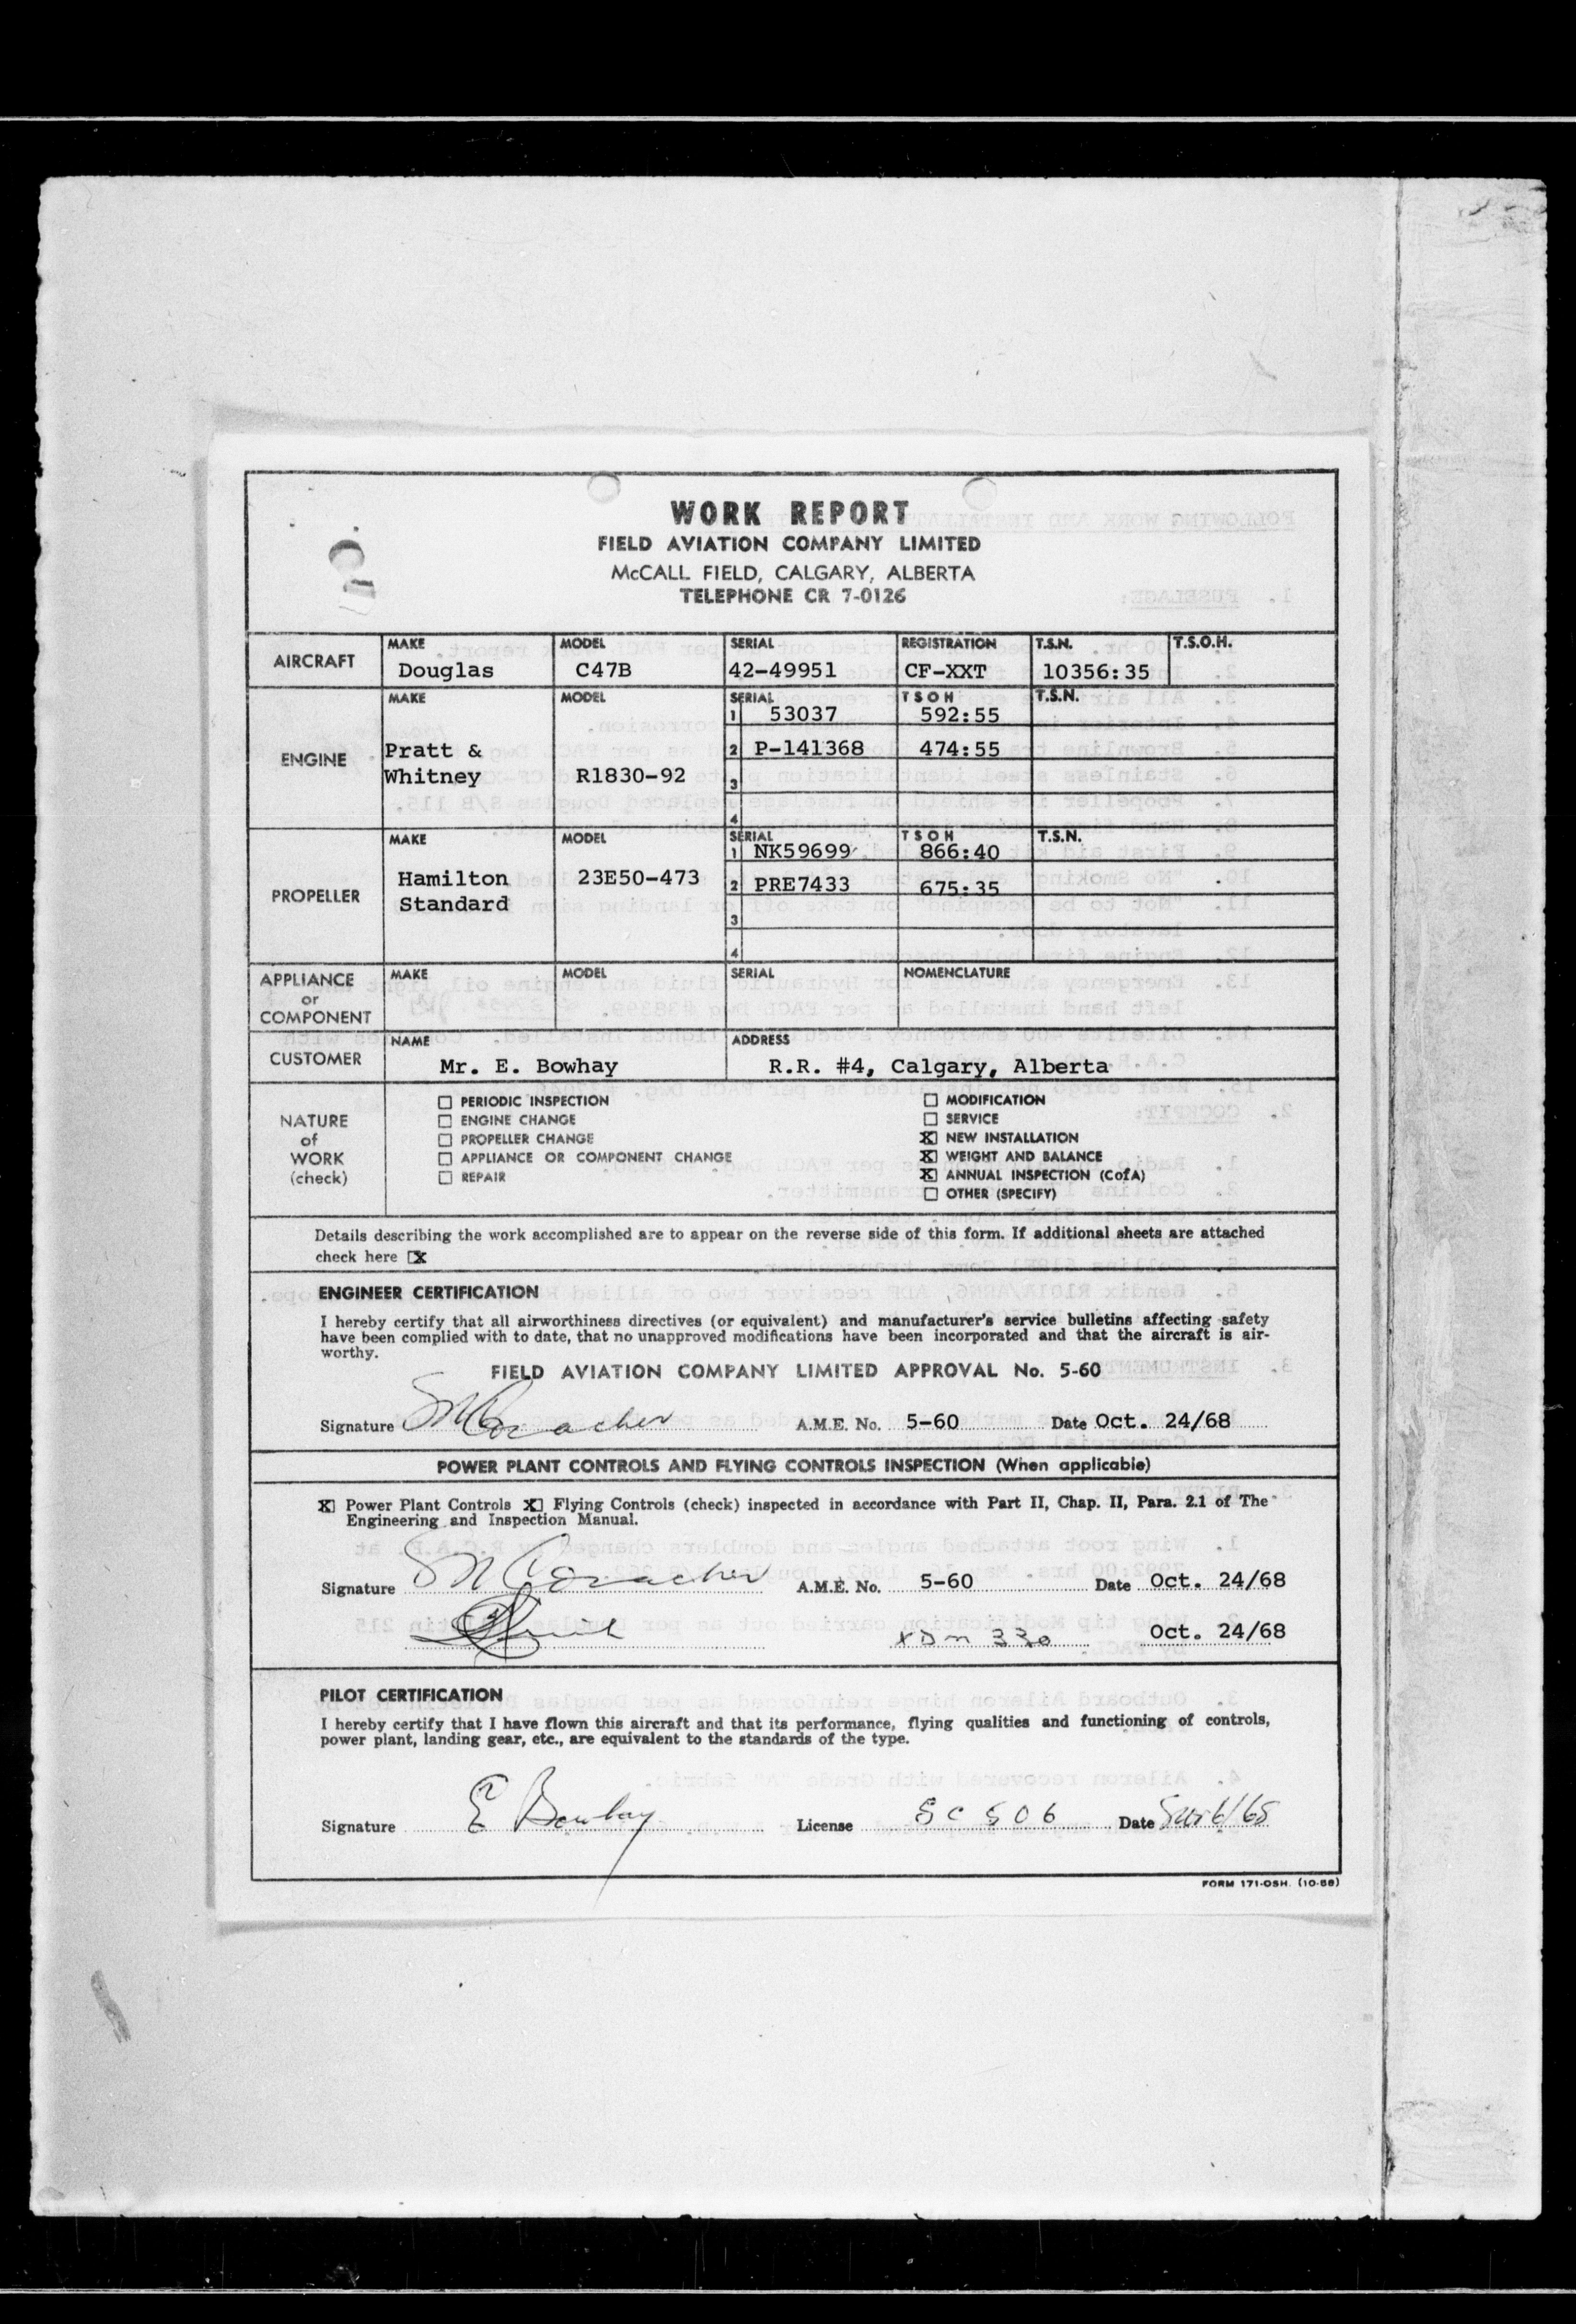 WORK REPORT
FIELD AVIATION COMPANY LIMITED
McCALL FIELD, CALGARY, ALBERTA
TELEPHONE CR 7-0126
AIRCRAFT MAKE Douglas MODEL C47B SERIAL 42-49951 REGISTRATION CF-XXT T.S.N. 10356:35 T.S.O.H.
ENGINE MAKE Pratt & Whitney MODEL R1830-92 SERIAL T S O H T.S.N.
1 53037 592:55
2 P-141368 474:55
3
4
PROPELLER MAKE Hamilton Standard MODEL 23E50-473 SERIAL T S O H T.S.N.
1 NK59699 866:40
2 PRE7433 675:35
3
4
APPLIANCE or COMPONENT MAKE MODEL SERIAL NOMENCLATURE
CUSTOMER NAME Mr. E. Bowhay ADDRESS R.R. #4, Calgary, Alberta
NATURE of WORK (check)
☐ PERIODIC INSPECTION
☐ ENGINE CHANGE
☐ PROPELLER CHANGE
☐ APPLIANCE OR COMPONENT CHANGE
☐ REPAIR
☐ MODIFICATION
☐ SERVICE
☒ NEW INSTALLATION
☒ WEIGHT AND BALANCE
☒ ANNUAL INSPECTION (CofA)
☐ OTHER (SPECIFY)
Details describing the work accomplished are to appear on the reverse side of this form. If additional sheets are attached
check here ☒
ENGINEER CERTIFICATION
I hereby certify that all airworthiness directives (or equivalent) and manufacturer's service bulletins affecting safety
have been complied with to date, that no unapproved modifications have been incorporated and that the aircraft is air-
worthy.
FIELD AVIATION COMPANY LIMITED APPROVAL No. 5-60
Signature A.M.E. No. 5-60 Date Oct. 24/68
POWER PLANT CONTROLS AND FLYING CONTROLS INSPECTION (When applicable)
☒ Power Plant Controls ☒ Flying Controls (check) inspected in accordance with Part II, Chap. II, Para. 2.1 of The
Engineering and Inspection Manual.
Signature A.M.E. No. 5-60 Date Oct. 24/68
330 Oct. 24/68
PILOT CERTIFICATION
I hereby certify that I have flown this aircraft and that its performance, flying qualities and functioning of controls,
power plant, landing gear, etc., are equivalent to the standards of the type.
Signature E Bowhay License SC 506 Date
FORM 171-OSH. (10-58)